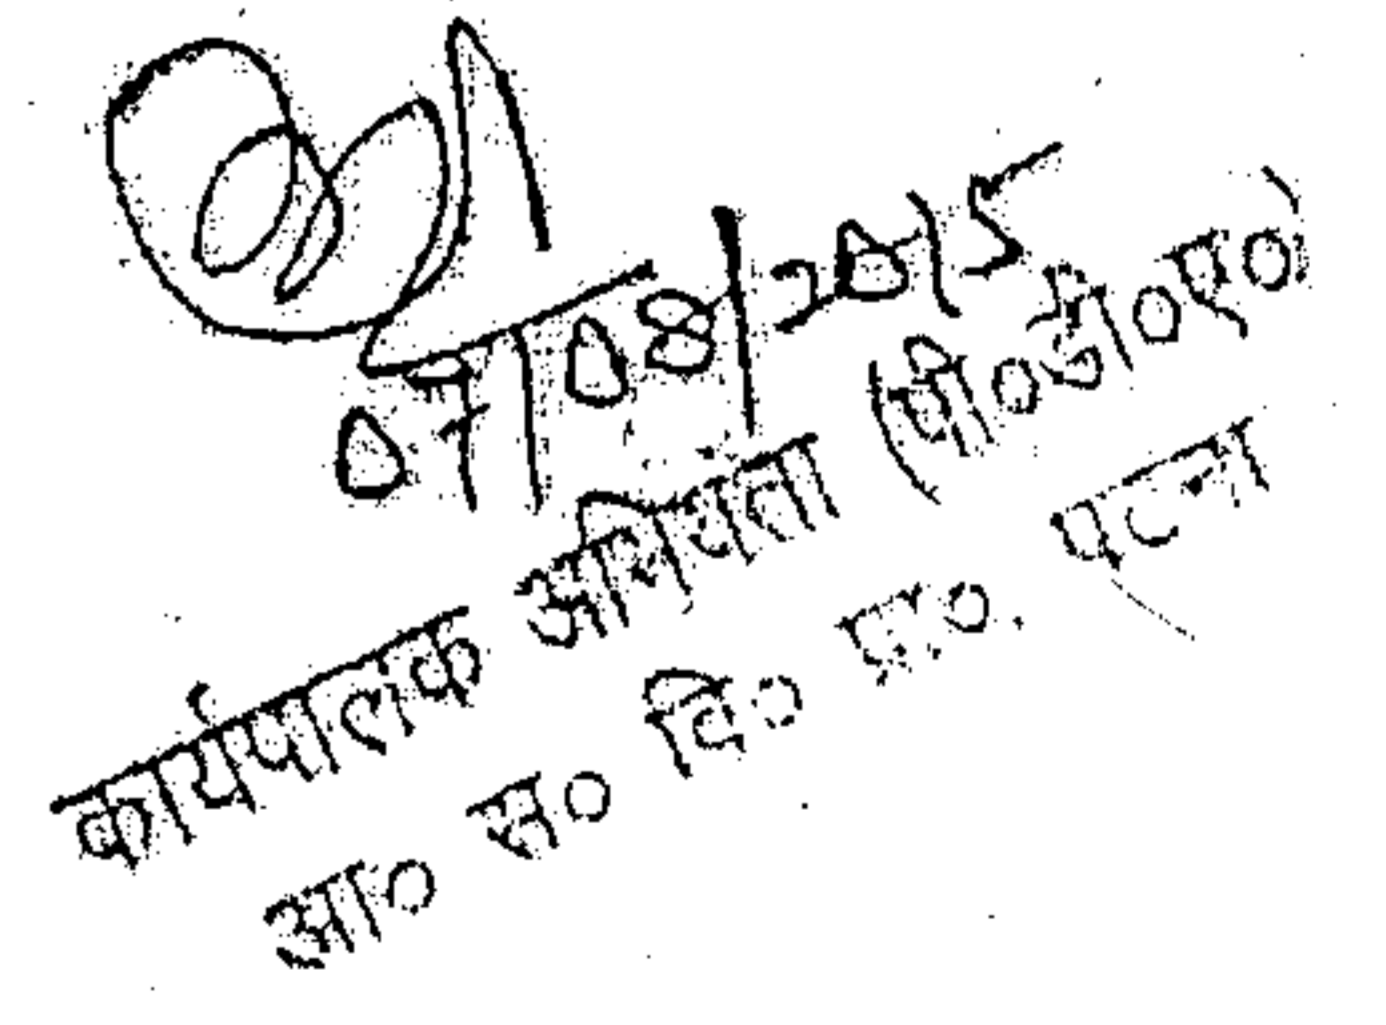 07/08/2015
कार्यपालक अभियंता (पी०डी०ए०)
आ० स० वि० प्र०. पटना